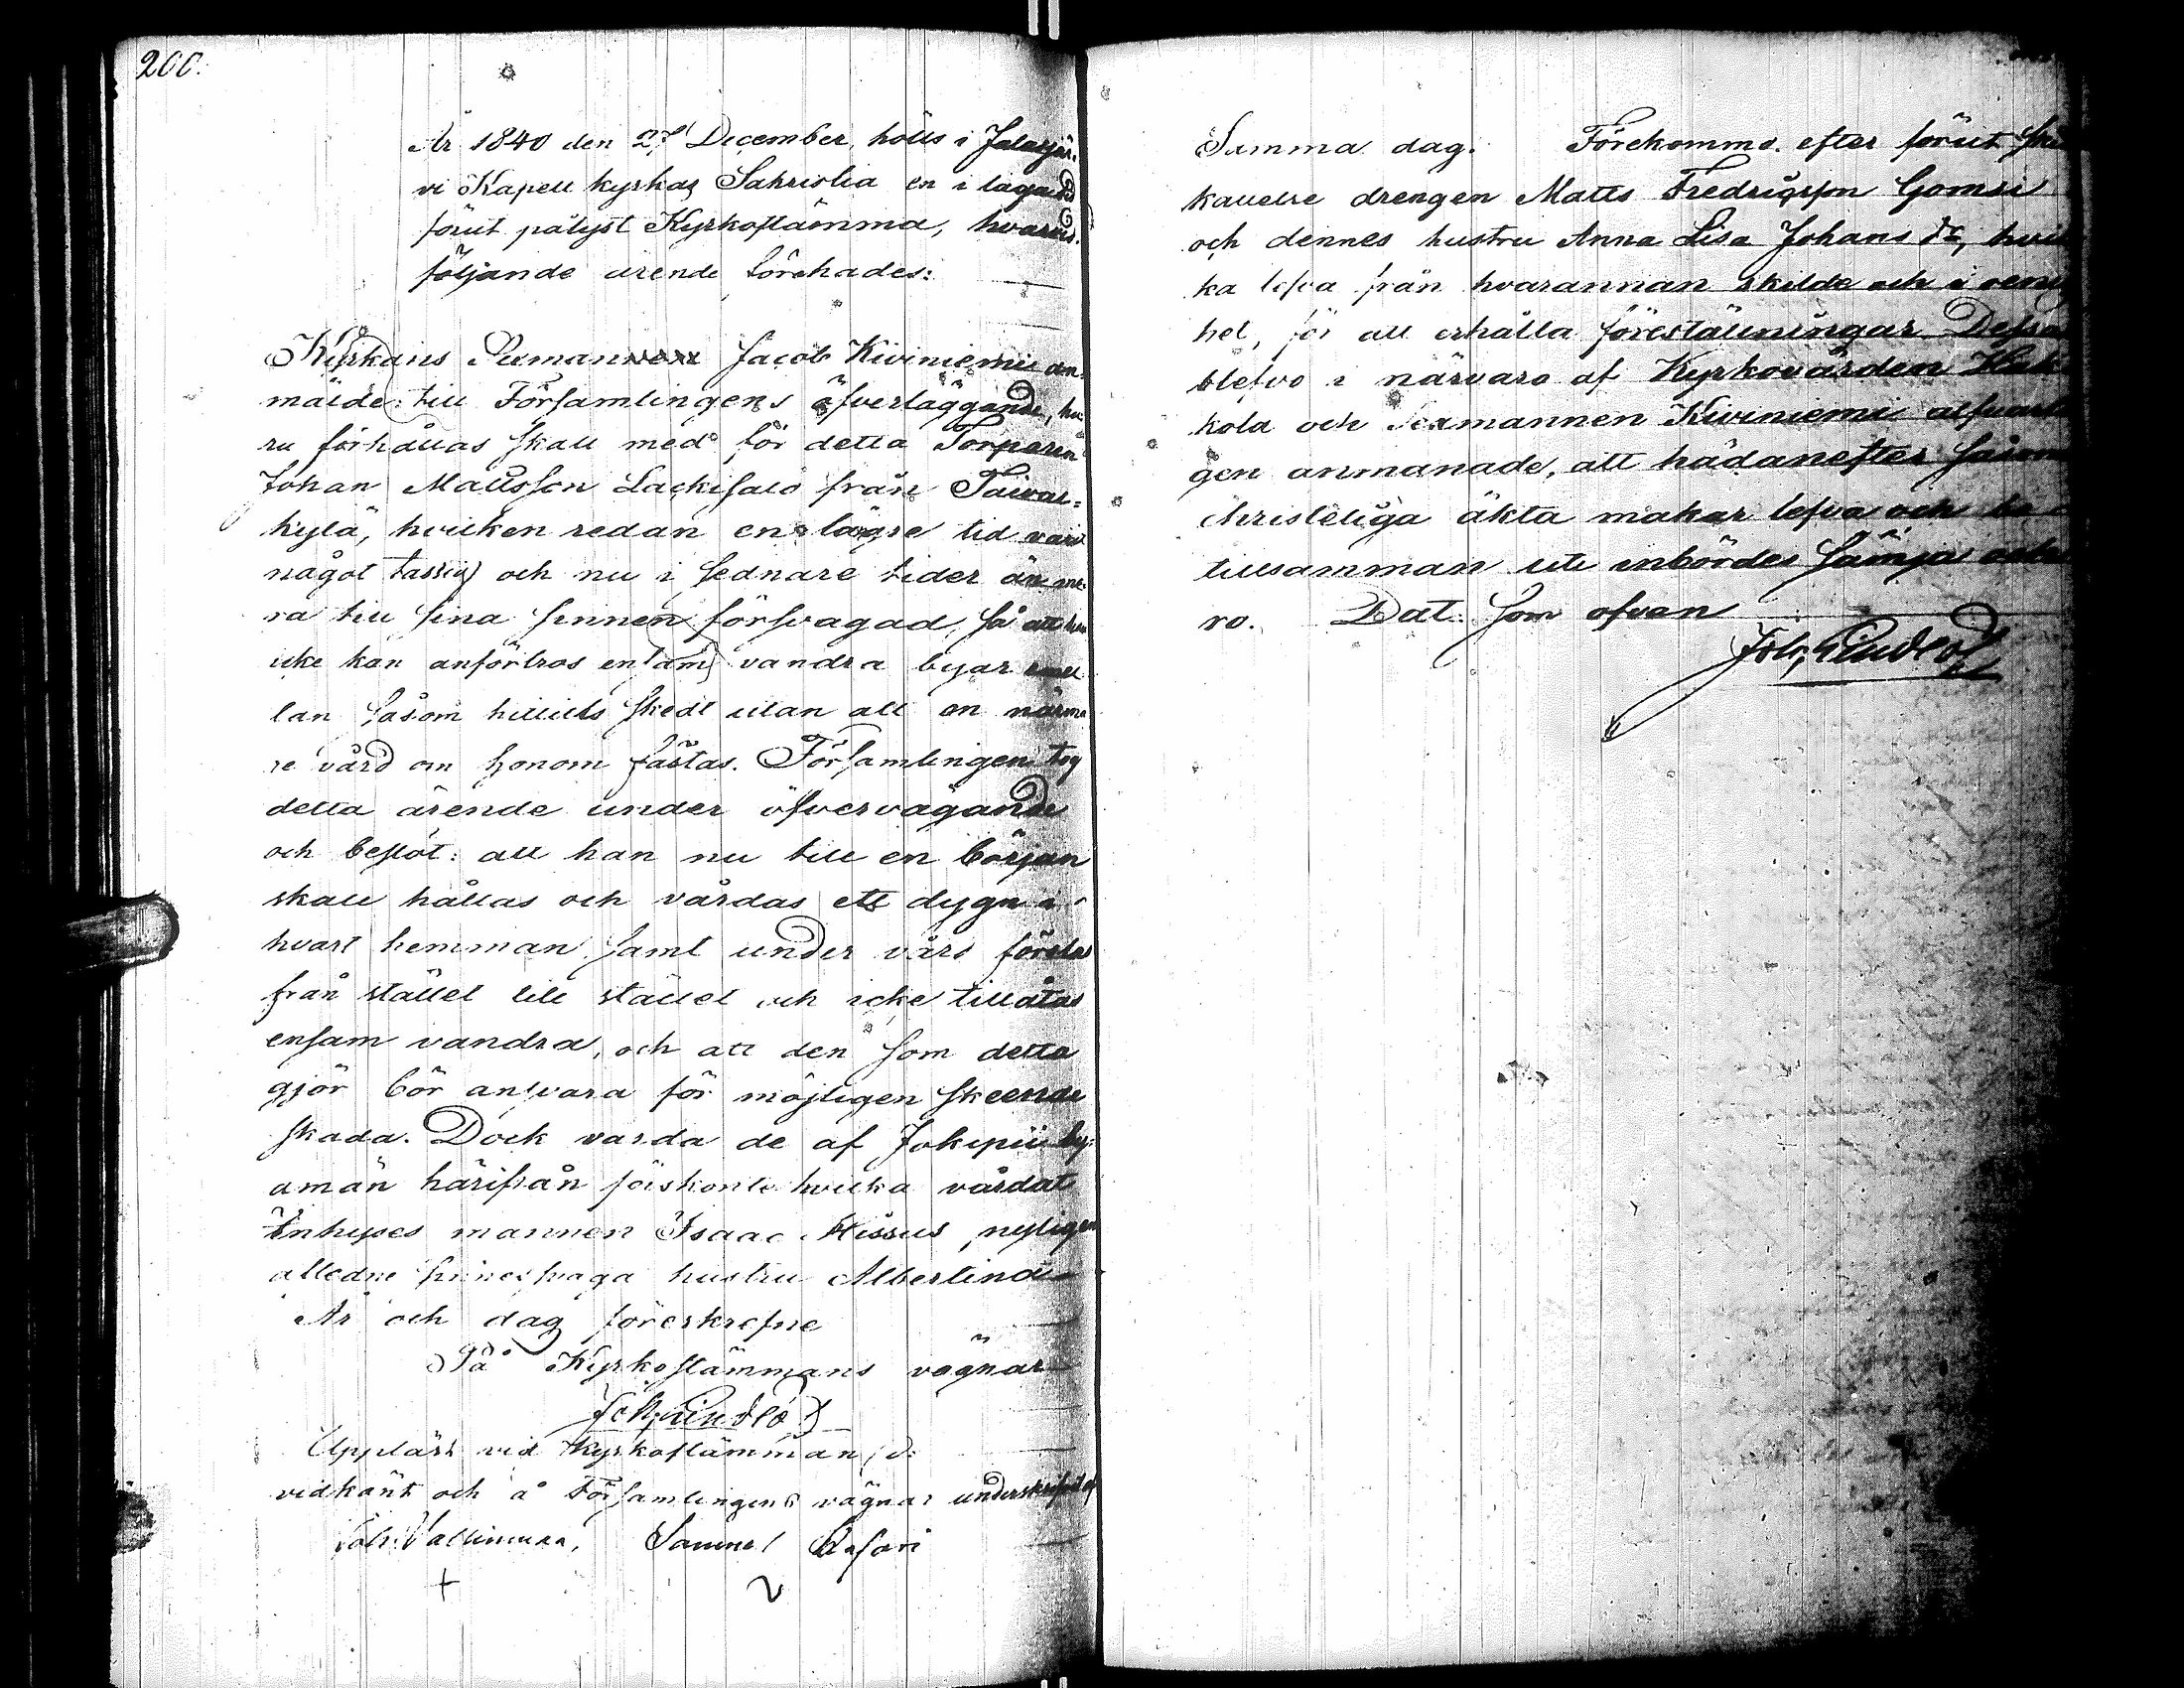 200.
År 1840 den 27 December, hölls i Jalasjär-
vi Kapell kyrkas Sakristia en i laga tid
förut pålyst Kyrkostämma, hvarvid
följande ärende förehades:
Kyrkans Sexman Jacob Kiviniemi an-
mälde till Församlingens öfverläggande, hu-
ru förhållas skall med för detta Torparen
Johan Mattsson Lackisalo från Taival-
kylä, hvilken redan en lägre tid varit
något tassig och nu i sednare tider än me-
ra till sina sinnen försvagad, så att han
icke kan anförtros ensam vandra byar emel-
lan såsom hittills skedt utan att en närma-
re vård om honom fästas. Församlingen tog
detta ärende under öfvervägande
och beslöt: att han nu till en början
skall hållas och vårdas ett dygn i
hvart hemman samt under vård föreslas
från stället till stället och icke tillåtas
ensam vandra, och att den som detta
gjör bör ansvara för möjligen skeende
skada. Dock varda de af Jokipii by-
amän härifrån förskonte hvilka vårdat
Inhyses mannen Isaac Hissus nyligen
afledne sinnessvaga hustru Albertina
År och dag förerskrefne
På Kyrkostämmans vägnar
Joh: Lindlöf
Uppläst vid Kyrkostämman,
vidkänt och å Församlingens vägnar underskrifvit af
Joh: Samuel
+
Samma dag. Förekommo efter förut ske
kallelse drengen Matts Fredricsson Gomsi
och dennes hustru Anna Lisa Johans dr, hvil
ka lefva från hvarannan skilde och i oenig
het, för att erhålla föreställningar. Dessa
blefvo i närvaro af Kyrkovärden
kola och Sexmannen Kiviniemi alfvarli
gen anmanade, att hädanefter såsom
christeliga äkta makar lefva och
tillsamman uti inbördes sämja och
ro. Dat: som ofvan
Joh: Lindlöf